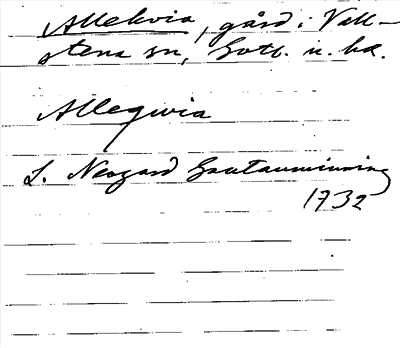 Allekvia, gård i Vall-
stena sn, Gotl. n. hd.
Allequia
L. Neogard Gautauminning
1732